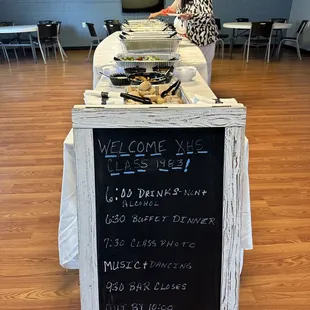 WELCOME XHS
CLASS 1983!
6:00 DRINKS-NON+
ALCOHOL
6:30 BUFFET DINNER
7:30 CLASS PHOTO
MUSIC + DANCING
9:30 BAR CLOSES
OUT BY 10:00